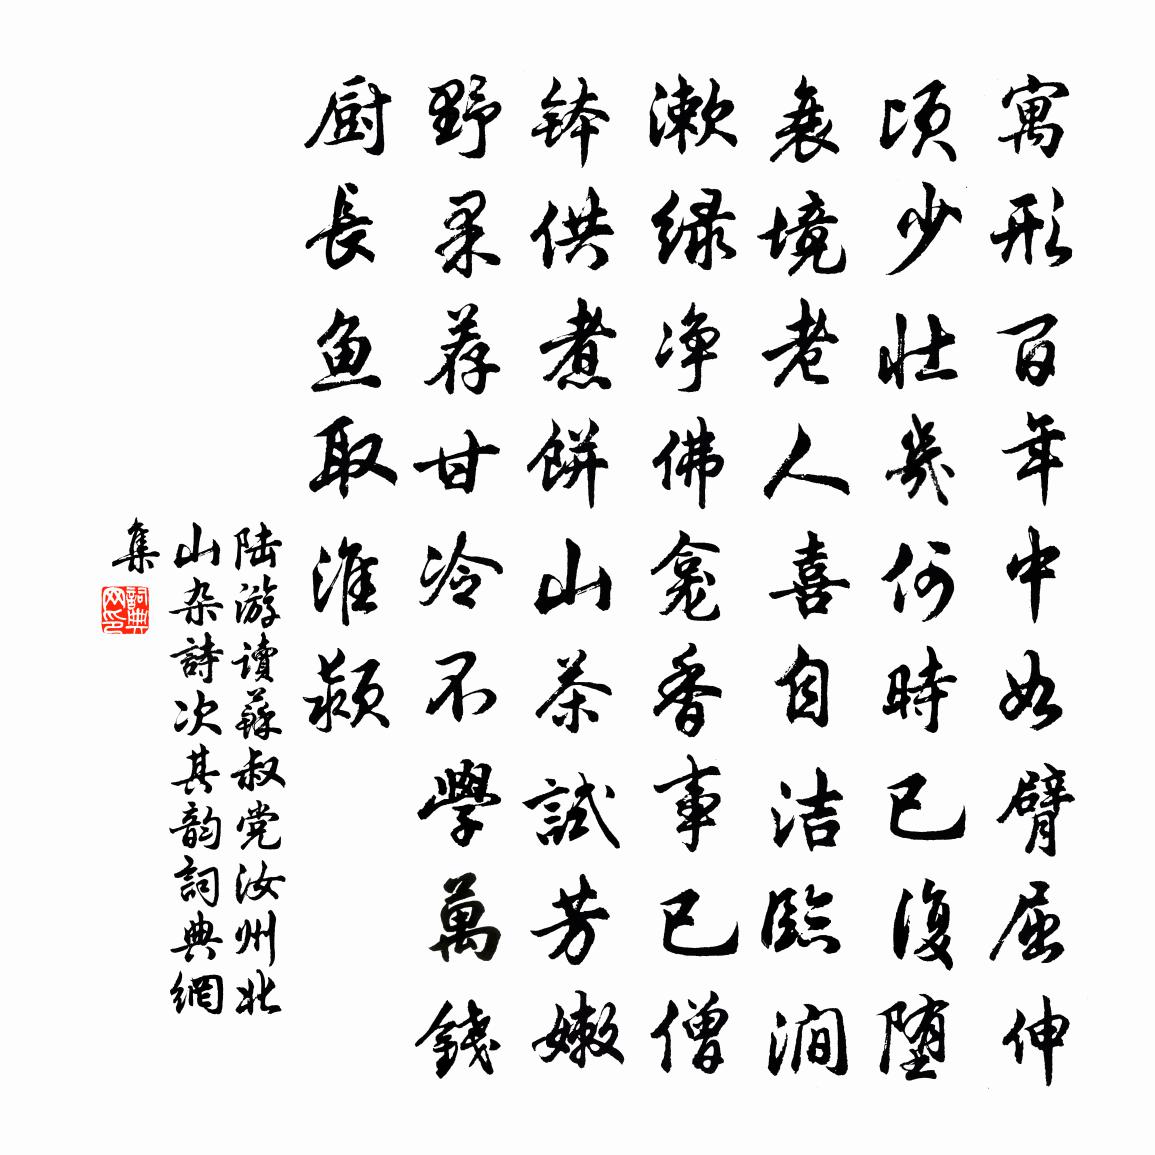 寓形百年中如臂屈伸
顷少壮几何时已复堕
衰境老人喜自洁临涧
漱绿净佛龛香事已僧
钵供煮餅山茶試芳嫩
野果荐甘冷不學萬錢
厨長鱼取淮颍
陆游读蘇叔党汝州北
山杂詩次其韵詞典網
集
詞典网